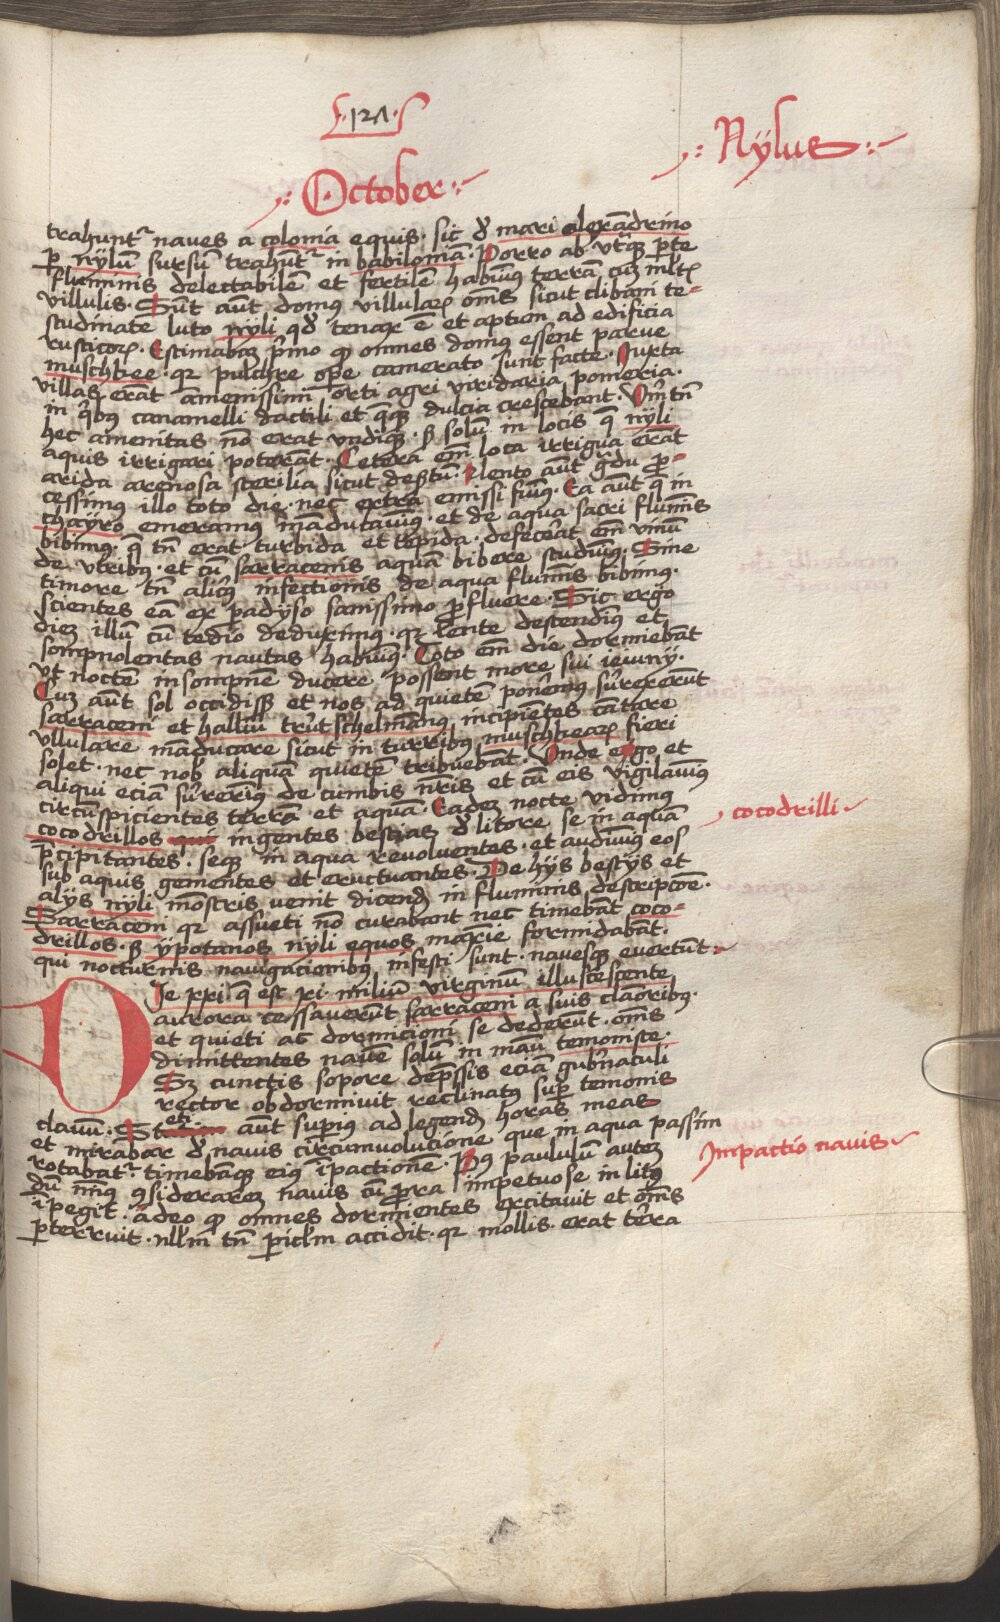 ·121·
Nÿlus
October
trahunt᷑ naues a colonia equis· sic d̕ mari alexa̅drino
ꝑ nÿlu̅ sursu̅ trahunt᷑ in babilonia̅· Porro ab vt̕q̕ ꝑte
fluminis delectabile̅ et fertile̅ habuim᷒ terra̅ cu̅ ml̕tꝭ
villulis· Su̅t au̅t domus villulaꝝ om̅s sicut clibani te-
studinate luto nyli qd̕ tenax e̅ et aptum ad edificia
rusticoꝝ· Estimabaʒ p̕mo ꝙ omnes domus essent parue
muschkee· qꝛ pulchre oꝑe camerato sunt facte· Iuxta
villas era̅t amenissimi orti agri viridaria pomeria·
in q̕bus canamelli dactili et q̅q̕ dulcia crescebant· Veru̅tn̅
hec amenitas no̅ erat vndiq̕· s̕ solu̅ in locis q̅ nyli
aquis irrigari potera̅t· Cetera em̅ loca irrigua era̅t
arida arenosa sterilia sicut desertu̅· Lento au̅t g̕du ꝓ-
cessimus illo toto die· nec extra emissi fuim᷒· Ea au̅t q̅ in
chayro emeramus ma̅ducauim᷒· et de aqua sacri flumi̅s
bibimus· q̅ tn̅ erat turbida et tepida· defecerat em̅ vinu̅
de vtribus· et cu̅ sarracenis aqua̅ bibere studuim᷒· Sine
timore tn̅ alicui᷒ infectionis de aqua flumi̅s bibimus·
scientes ea̅ ex padyso sanissimo ꝓfluere· Sic ergo
dieʒ illu̅ cu̅ tedio deduximus· qꝛ lente descendim᷒ et
sompnolentas nautas habuim᷒· Toto em̅ die dormieba̅t
vt nocte̅ insompne̅ ducere possent more sui ieiunÿ·
Cuʒ au̅t sol occidiss̕ et nos ad quiete̅ poner̅mus surrexeru̅t
sarraceni et halliu̅ trutschelma̅nus incipie̅tes ca̅tare
vllulare ma̅ducare sicut in turribus muschkeaꝝ fieri
solet· nec nob̕ aliqua̅ quiete̅ tribueba̅t· Vnde ego et
aliqui ecia̅ surexim᷒ de cumbis nr̅is et cu̅ eis vigilauim᷒
circu̅spicientes terra̅ et aqua̅· Eadeʒ nocte vidimus
cocodrilli
cocodrillos qui ingentes bestias d̕ litore se in aqua̅
p̅cipitantes· seq̕ in aqua reuoluentes· et audiuim᷒ eos
sub aquis gementes et eructuantes· De hÿs bestÿs et
alÿs nÿli mostris venit dicend̕ in fluminis descripto̅e·
Sarraceni qꝛ assueti no̅ curabant nec timeba̅t coco-
drillos· s̕ ÿpotanos nÿli equos maxi̅e formidaba̅t·
qui nocturnis nauigacionibus infesti sunt· nauesq̕ euertu̅t·
DIe xxi· q̅ est xi· miliu̅ virginu̅ illustescente
aurora cessaueru̅t sarraceni a suis clamoribus·
et quieti ac dormicioni se dederu̅t· om̅s
dimittentes naue̅ solu̅ in manu̅ temoniste·
Sʒ cunctis sopore dep̅ssis ecia̅ gub̕naculi
rector obdormiuit reclinat᷒ suꝑ temonis
clauu̅· Steti au̅t suꝑius ad legend̕ horas meas
et mirabar d̕ nauis circu̅uolucione que in aqua passim
Impactio nauis
rotabat᷑· timeba̅q̕ ei᷒ i̅pactione̅· Post paululu̅ auteʒ
du̅ min᷒ ꝯsiderareʒ nauis cu̅ prora impetuose in lit᷒
i̅pegit· adeo ꝙ omnes dormientes excitauit et om̅s
ꝑterruit· nll̅m tn̅ ꝑicl̅m accidit· qꝛ mollis erat te̅rra